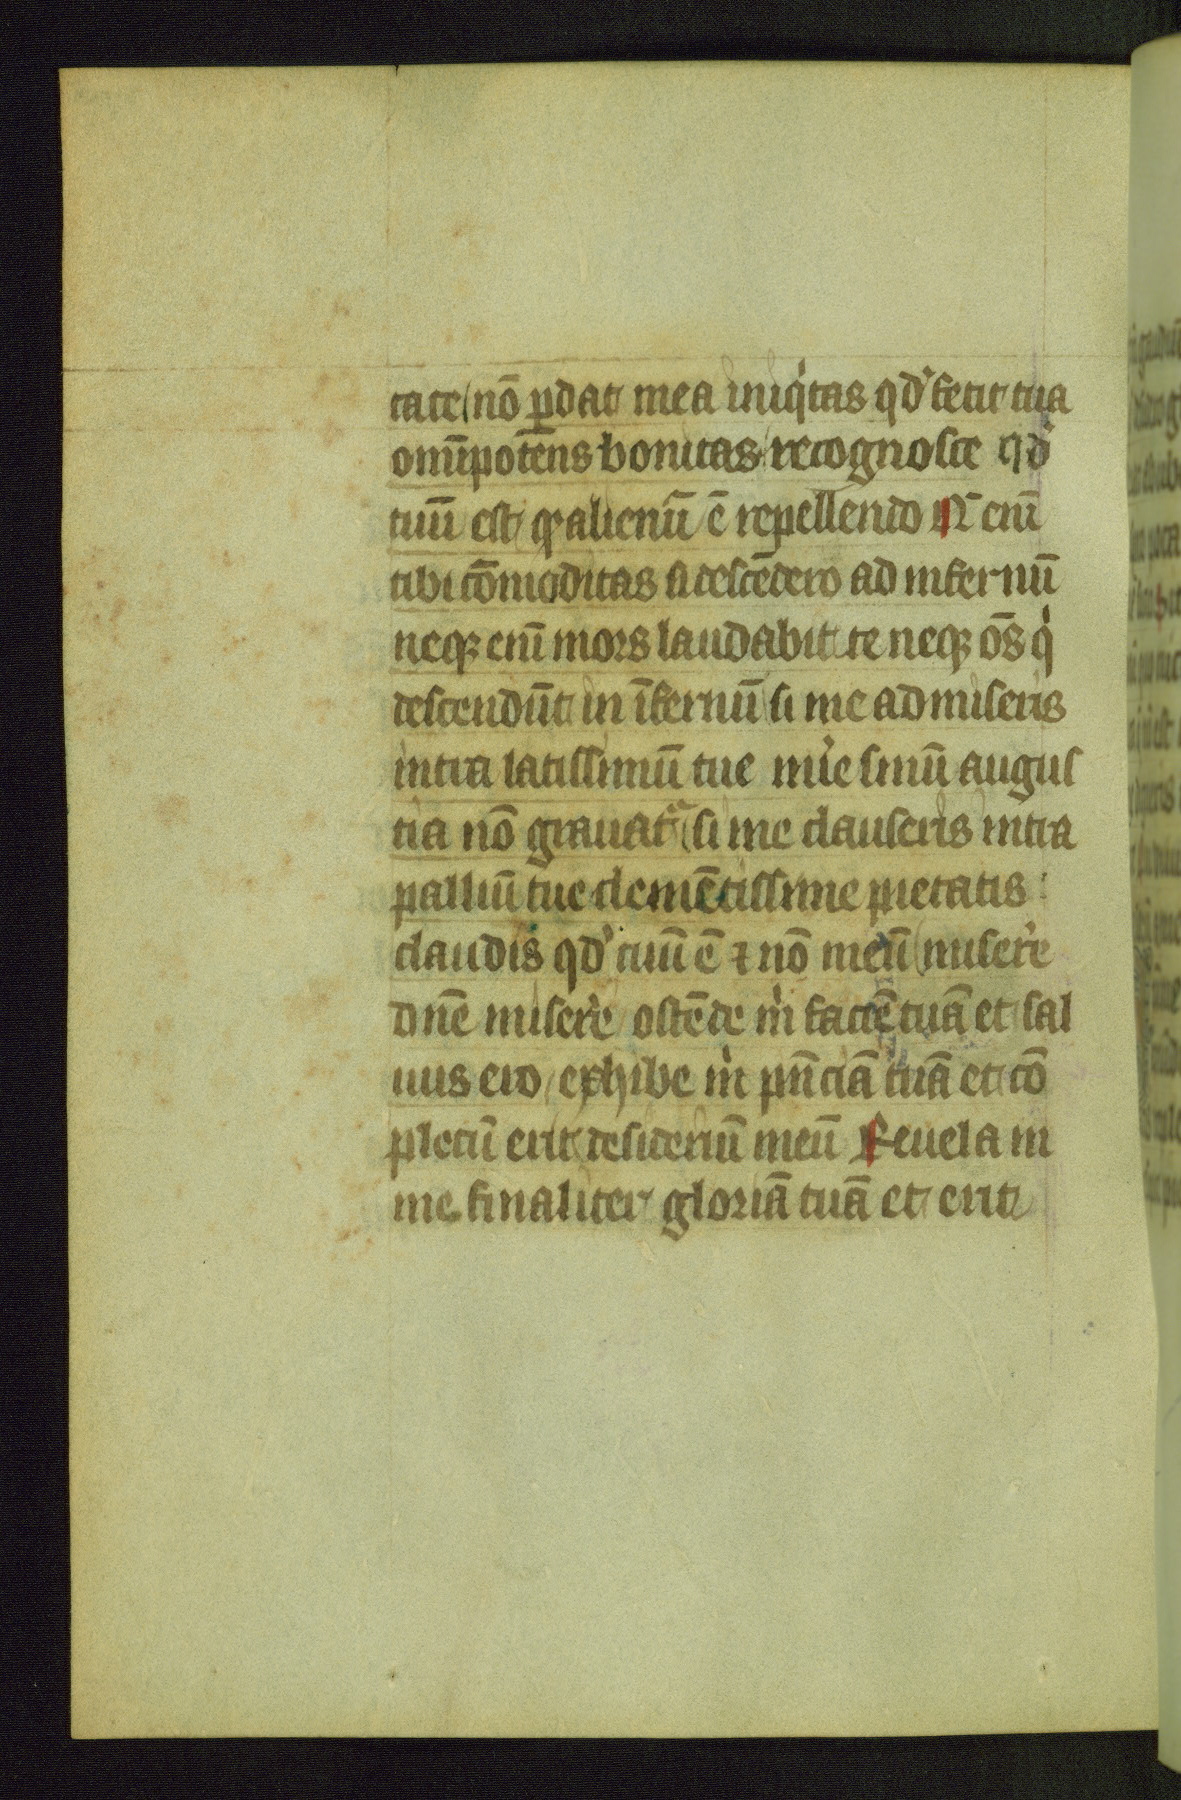 tate non ꝑdat mea iniqͥtas qd̾ fecit tua
om̄ipotēns bonitas recognosce qd̾
tuū est qͥ alienū ē repellendo N̄ eni̅
tibi cōmoditas si descēdero ad infernū
neqꝫ eni̅ mors laudabit te neqꝫ om̄s qͥ
descendūt in īfernū si me admiseris
intra latissimū tue mīe sinū angus
tia nō grauatᷣ si me clauseris intra
palliū tue clemētissime pietatis
claudis qd̾ tuū ē ⁊ nō meū miserͤre
dn̄e miserͤre ostēde mͥ faciē tuā et sal
uus ero exhibe mͥ pn̄ciā tuā et cō
pletū erit desideriū meū Reuela in
me finaliter gloriā tuā et erit